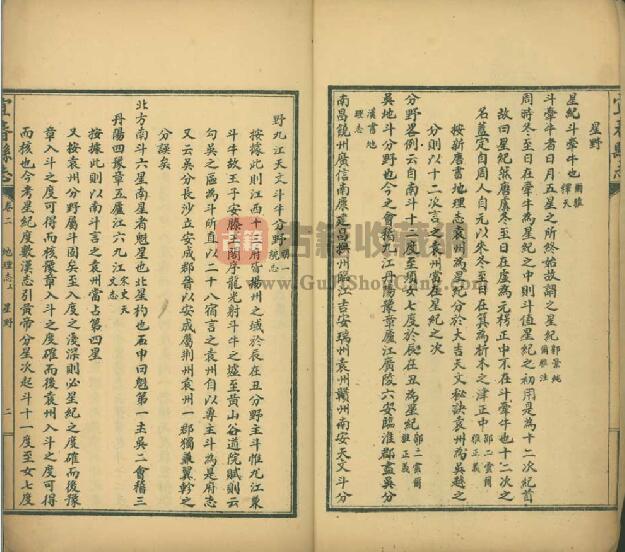 星野
星紀斗牽牛也爾雅釋天
斗牽牛者日月五星之所終始故謂之星紀郭景純爾雅注
周時冬至日在牽牛為星紀之中則斗值星紀之初用是為十二次紀首
故曰星紀然唐虞冬至日在虛為元枵正中不在斗牽牛也十二次之
名蓋定自周人自元以來冬至日在箕為析木之津正中邵二雲爾雅正義
按新唐書地理志袁州為星紀分於大吉天文秘訣袁州為吳越之
分則以十二次言之袁州當在星紀之次
分野畧例云自南斗十一度至須女七度於辰在丑為星紀邵二雲爾雅正義
吳地斗分野也今之會稽九江丹陽豫章廬江廣陵六安臨淮郡盡吳分
漢書地理志
南昌饒州廣信南康建昌撫州臨江吉安瑞州袁州贛州南安天文斗分
野九江天文斗牛分野明一統志
按據此則江西十三府皆揚州之域於辰在丑分野主斗惟九江兼
斗牛故王子安滕王閣序龍光射斗牛之墟至黃山谷道院賦則云
勾吳之區為斗所直以二十八宿言之袁州自以專主斗為是府志
又云吳分長沙立安成郡晉以安成屬荆州袁州一郡獨兼翼軫之
分誤矣
北方南斗六星南星者魁星也北星杓也石申曰魁第一主吳二會稽三
丹陽四豫章五廬江六九江宋史天文志
按據此則以南斗言之袁州當占第四星
又按袁州分野屬斗固矣至入度之淺深則必星紀之度確而後豫
章入斗之度可得而核豫章入斗之度確而後袁州入斗之度可得
而核也今考星紀度數漢志引黃帝分星次起斗十一度至女七度
宜春縣志
卷二
地理志上
星野
二
古籍
古籍收藏網
www.GuJiShouCang.com